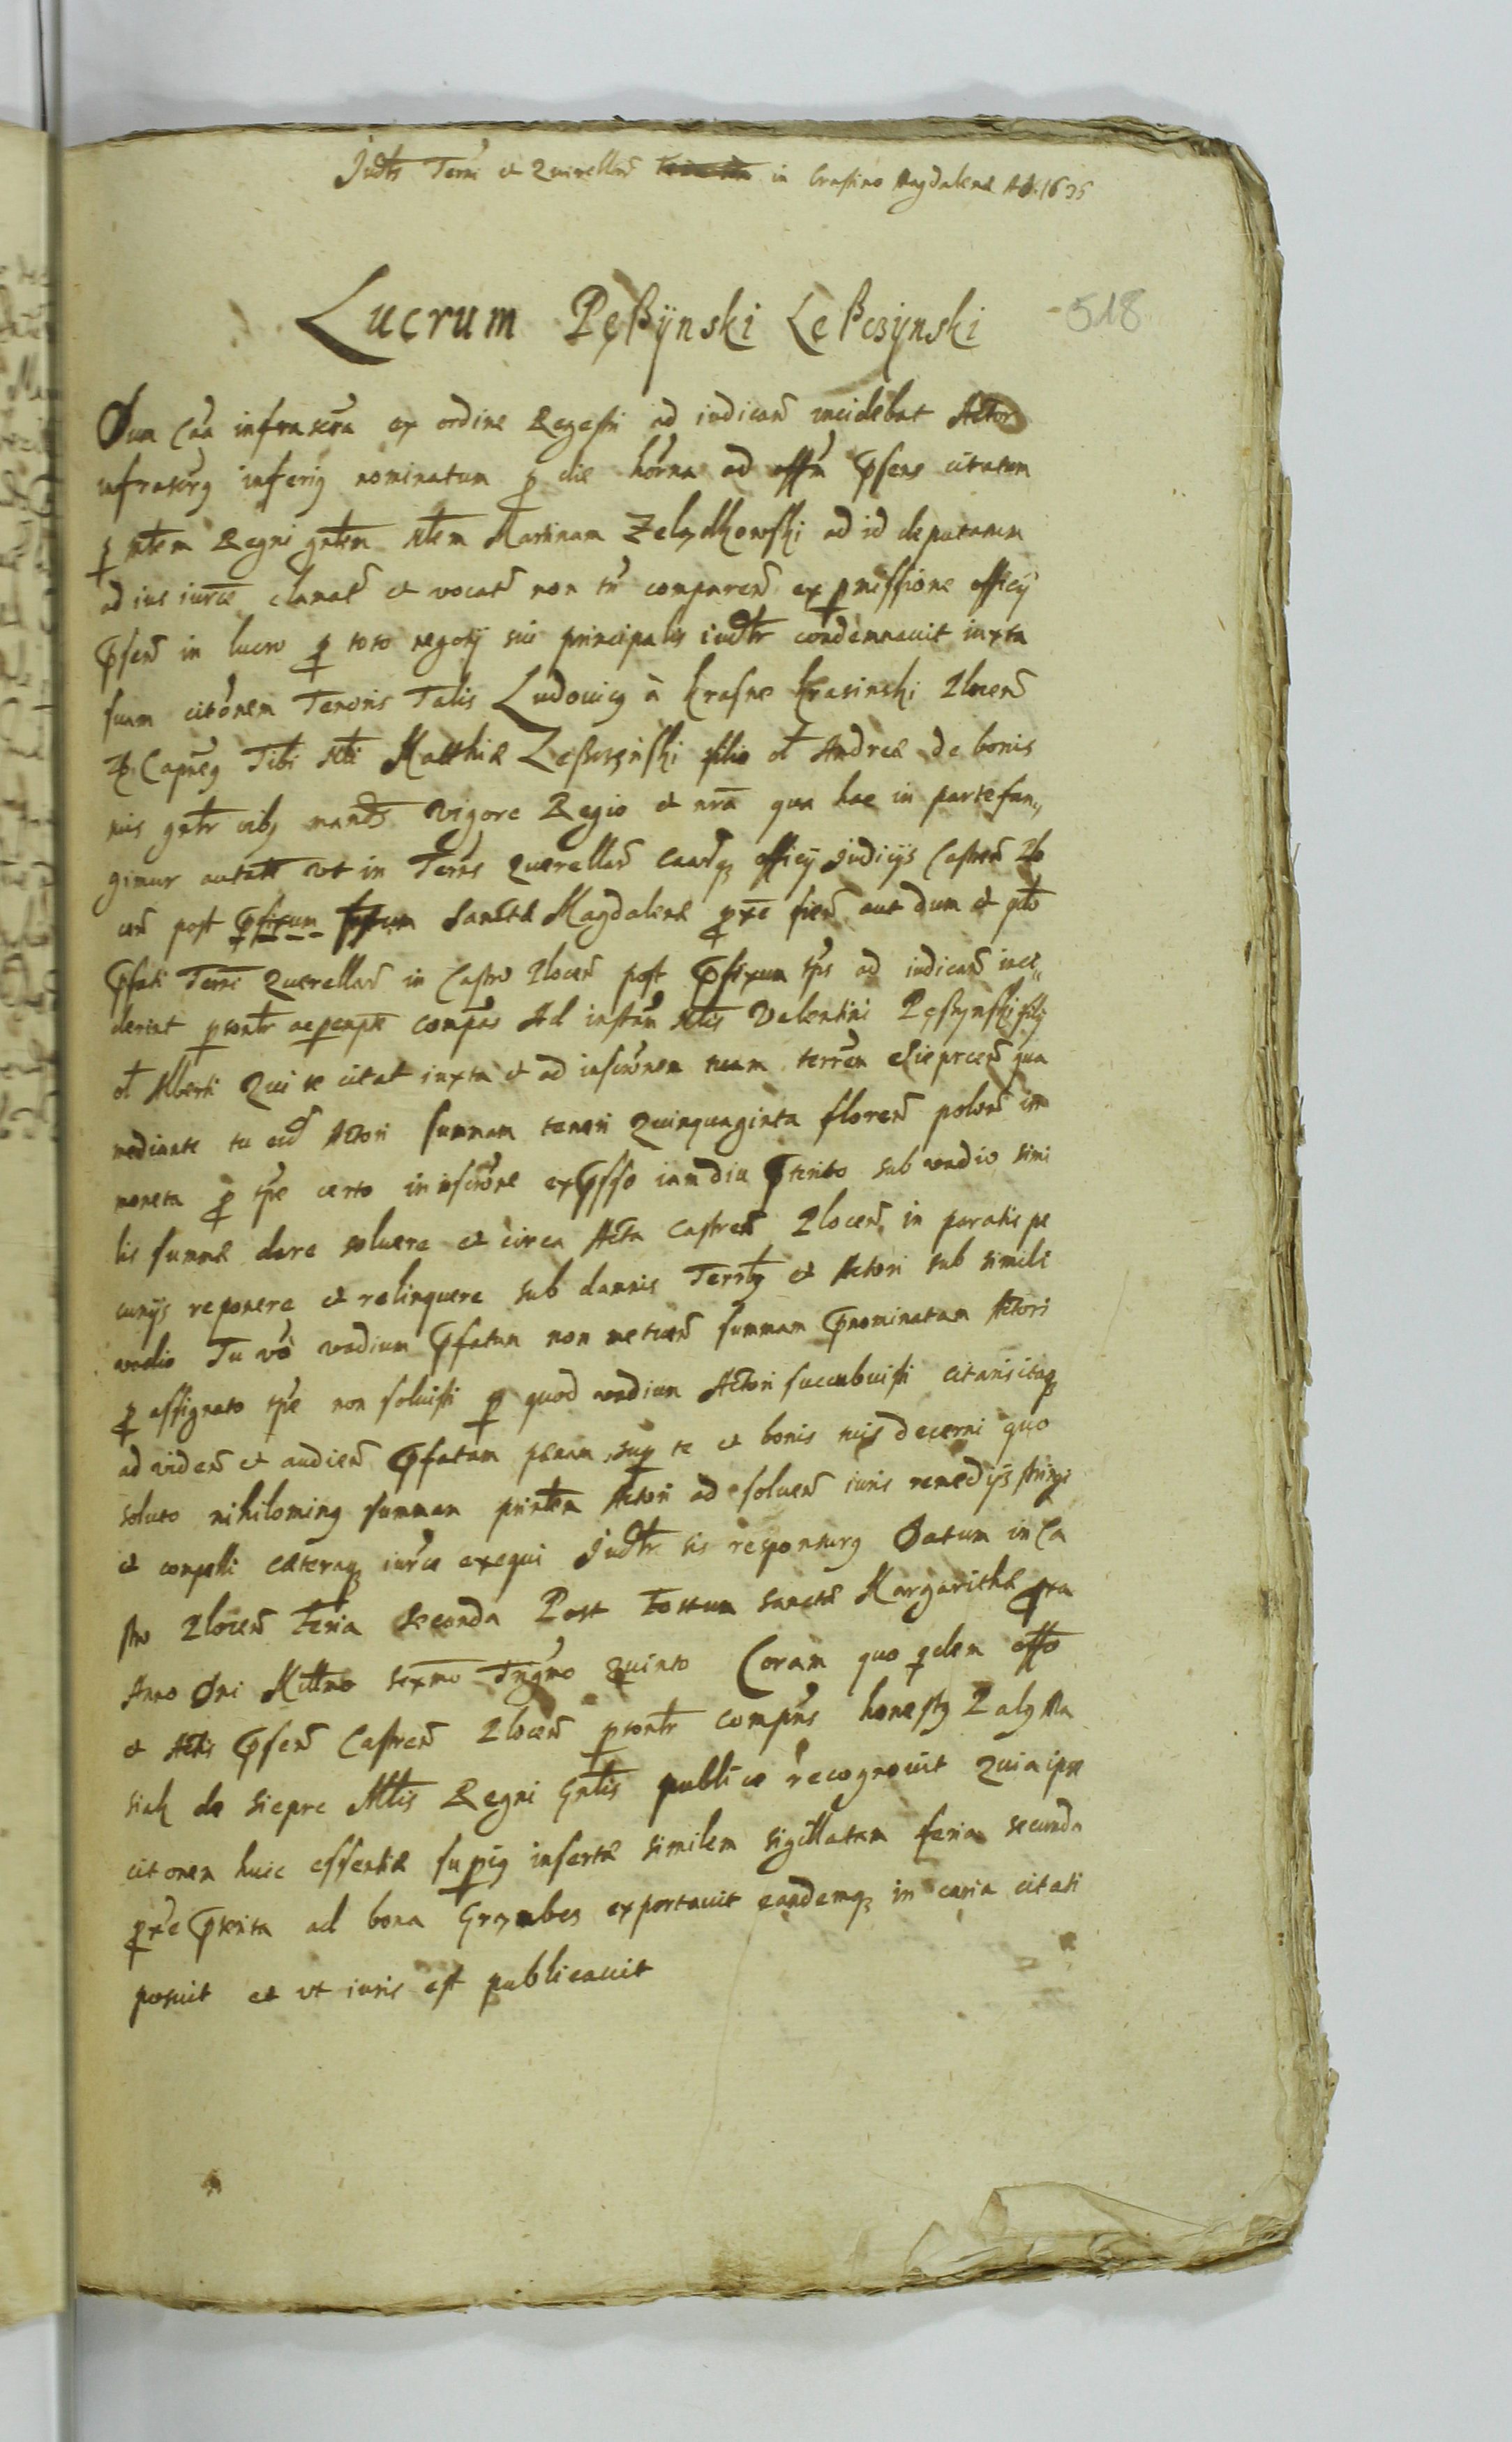 Judtr Terri et Querellar̃ in Crastino Magdalenæ AD. 1635
518
Lucrum Pęßÿnski Leßczÿnski
Dum Caa infrascra ex ordine Regestri ad iudicañ incidebat Actor
infrascrg inferig nominatum p die horna ad offm pñsens citatum
p Mtem Regni gnłem Mtem Martinum Zelazkowski ad id deputatum
ad ius iurce clamat et vocat non tñ comparen̄ ex pmissione officÿ
pñsen̄ in lucro p toto negotÿ sui principalis iudtr condemnauit iuxta
suam citonem Tenoris Talis Ludouicg à Krasne Krasinski Plocen̄
Capneg Tibi Mti Matthiæ Leßczÿnski filio ol Andreæ de bonis
tuis gntr oibg mandg Vigore Regio et nrã qua hac in parte fun„
gimur autate vt in Terris Querellar̃ Caarqz officÿ Judicÿs Castren̄ Plo
cen̄ post pfixum festum Sanctæ Magdalenæ pxe fien̄ aut dum et qño
pfati Terri Querellar̃ in Castro Plocen̄ post pfixum tps ad iudicañ inci„
derint psontr ac peremptr compas Ad instam Mtis Valentini Pęßynski filÿ
ol Alberti Qui te citat iuxta et ad inscronem tuam terrem Sieprcen̄ qua
mediante tu eid Actori summam tenori Quinquaginta floren̄ polon̄ in
moneta p tpe certo in inscrone expsso iamdiu pterito sub vadio simi
lis summæ dare soluere et circa Acta Castren̄ Plocen̄ in paratis pe
cunÿs reponere et relinquere sub damnis Terrbg et Actori sub simili
vadio Tu vo vadium pfatum non metuen̄ summam pnominatam Actori
p assignato tpe non soluisti p quod vadium Actori succubuisti citaris itaqz
ad viden̄ et audien̄ pfatam pænam sup te et bonis tuis decerni quo
soluto nihiloming summam printem Actori ad soluen̄ iuris remedÿs stringi
et conpelli cæteraqz iurca exequi Judtr sis responsurg Datum in Ca
stro Plocen̄ Feria Secunda Post Festum Sanctæ Margarithæ pxa
Anno Dni Millmo Sexmo Trigmo Quinto Coram quo qdem offo
et Actis pñsen̄ Castren̄ Plocen̄ psontr compns honestg Palg Ma
siak de Siepre Mtis Regni Gnłis publice recognouit Quia ipse
citonem huic essentiæ supig insertæ similem sigillatam feria secunda
pxe pterita ad bona Grzębes exportauit eandemqz in curia citati
posuit et vt iuris est publicauit